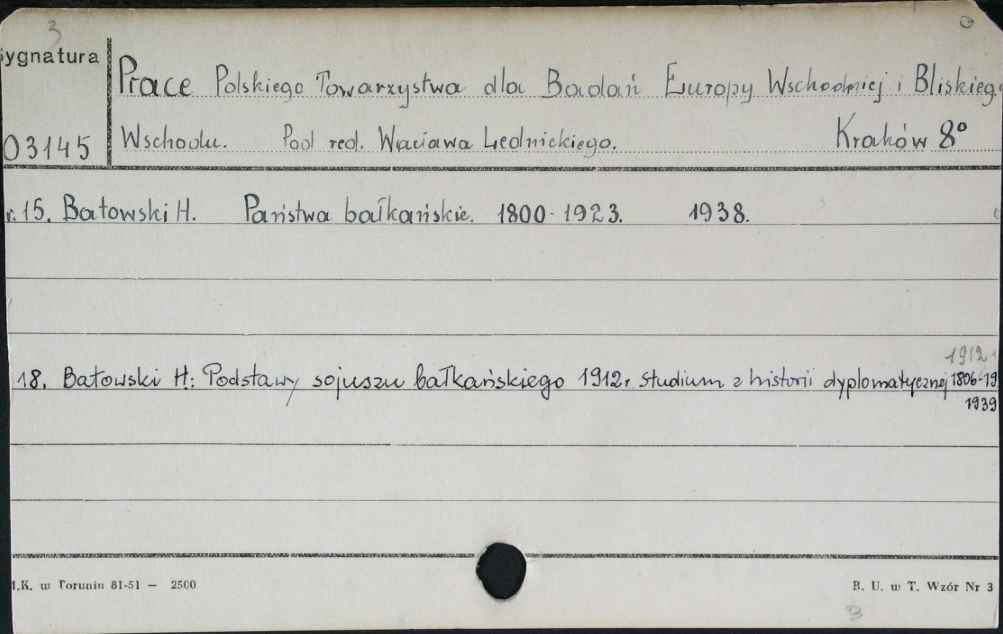 3
ygnatura
Prace Polskiego Towarzystwa dla Badań Europy Wschodniej i Bliskieg
03145 Wschodu. Pod red. Wacława Lednickiego. Kraków 8°
r. 15. Batowski H. Państwa bałkańskie. 1800-1923. 1938.
1912
18. Batowski H: Podstawy sojuszu bałkańskiego 1912r. Studium z historii dyplomatycznej 1806-19
1939
.K. w Toruniu 81-51 — 2500 B. U. w T. Wzór Nr 3